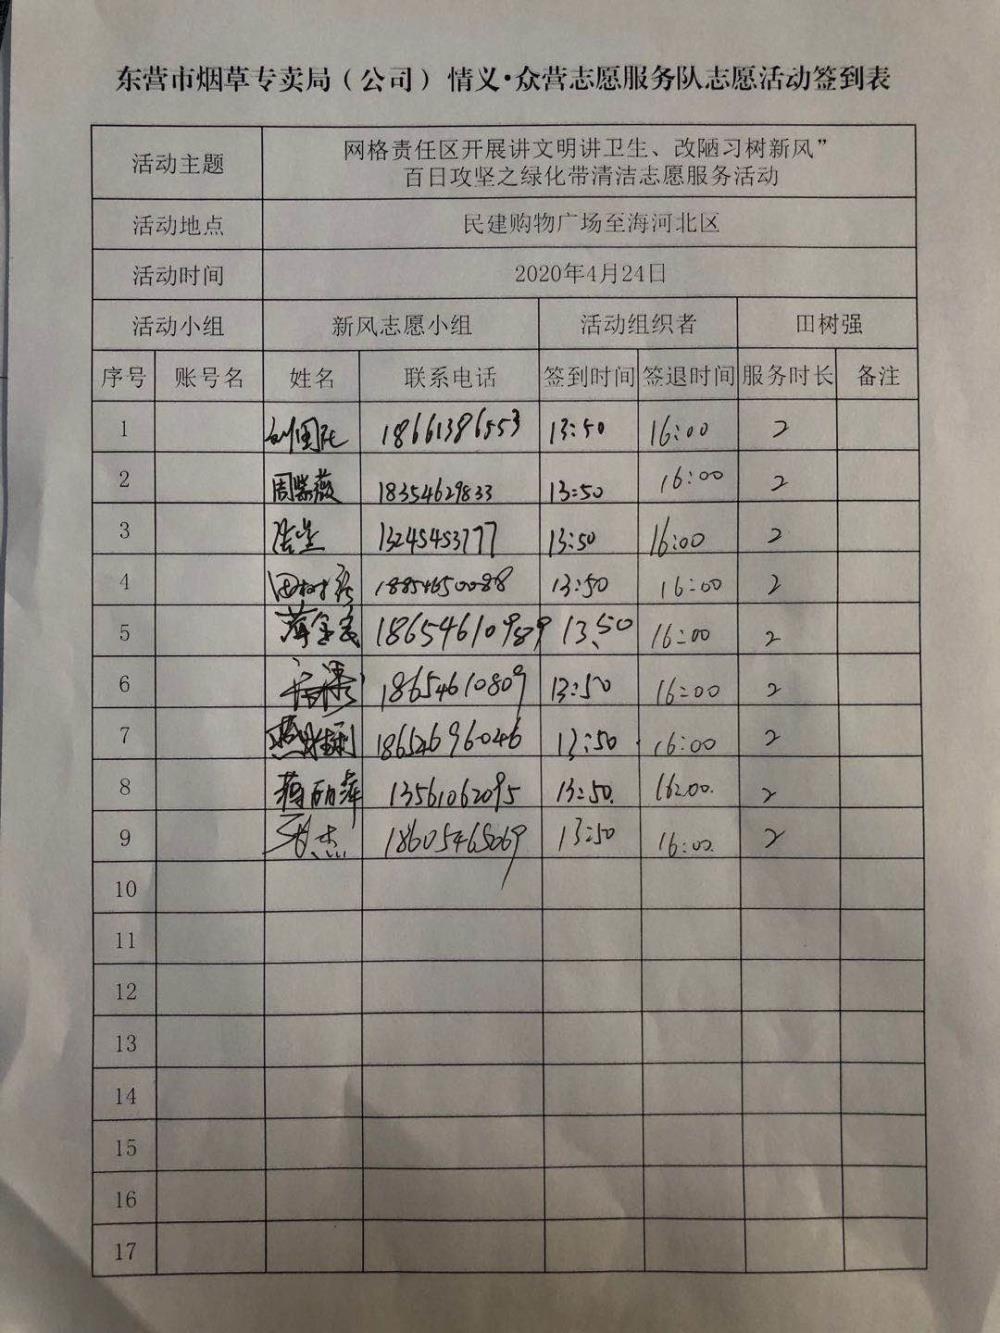 东营市烟草专卖局（公司）情义·众营志愿服务队志愿活动签到表
活动主题 网格责任区开展讲文明讲卫生、改陋习树新风”
百日攻坚之绿化带清洁志愿服务活动
活动地点 民建购物广场至海河北区
活动时间 2020年4月24日
活动小组 新风志愿小组 活动组织者 田树强
序号 账号名 姓名 联系电话 签到时间 签退时间 服务时长 备注
1 18661386553 13:50 16:00 2
2 周紫薇 18354629833 13:50 16:00 2
3 13245453777 13:50 16:00 2
4 田树强 18854650088 13:50 16:00 2
5 18654610989 13:50 16:00 2
6 18654610809 13:50 16:00 2
7 燕胜利 18654696046 13:50 16:00 2
8 蒋丽萍 13561062095 13:50. 16:00. 2
9 18605465069 13:50 16:00. 2
10
11
12
13
14
15
16
17